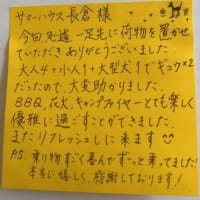 サマーハウス長倉 様
今回先達 一足先に荷物を置かせて
いただきありがとうございました。
大人4+小人1+大型犬1でギュウ×2
だったので、大変助かりました。
BBQ、花火、キャンプファイヤーととても楽しく
優雅に過ごすことができました。
またリフレッシュしに来ます
P.S. 乗り物すごく喜んでずーっと乗ってました!
本当に嬉しく、感謝しております!